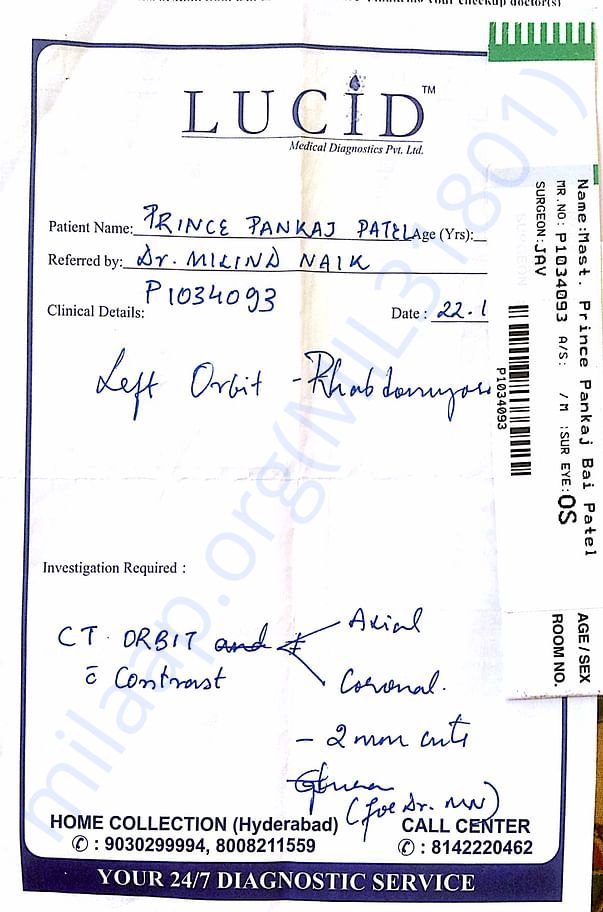 your checkup doctor(s)
LUCID™
Medical Diagnostics Pvt. Ltd.
Patient Name: PRINCE PANKAJ PATEL Age (Yrs):
Referred by: Dr. MILIND NAIK
P1034093
Clinical Details:
Date : 22.1
Left Orbit - Rhabdomyos
Investigation Required :
CT ORBIT and
c̄ Contrast
Axial
Coronal.
- 2 mm cuts
(for Dr. MN)
HOME COLLECTION (Hyderabad)
✆ : 9030299994, 8008211559
CALL CENTER
✆ : 8142220462
YOUR 24/7 DIAGNOSTIC SERVICE
Name :Mast. Prince Pankaj Bai Patel
MR.NO: P1034093 A/S: /M :SUR EYE: OS
SURGEON: JAV
P1034093
AGE / SEX
ROOM NO.
milaap.org(MIL31801)